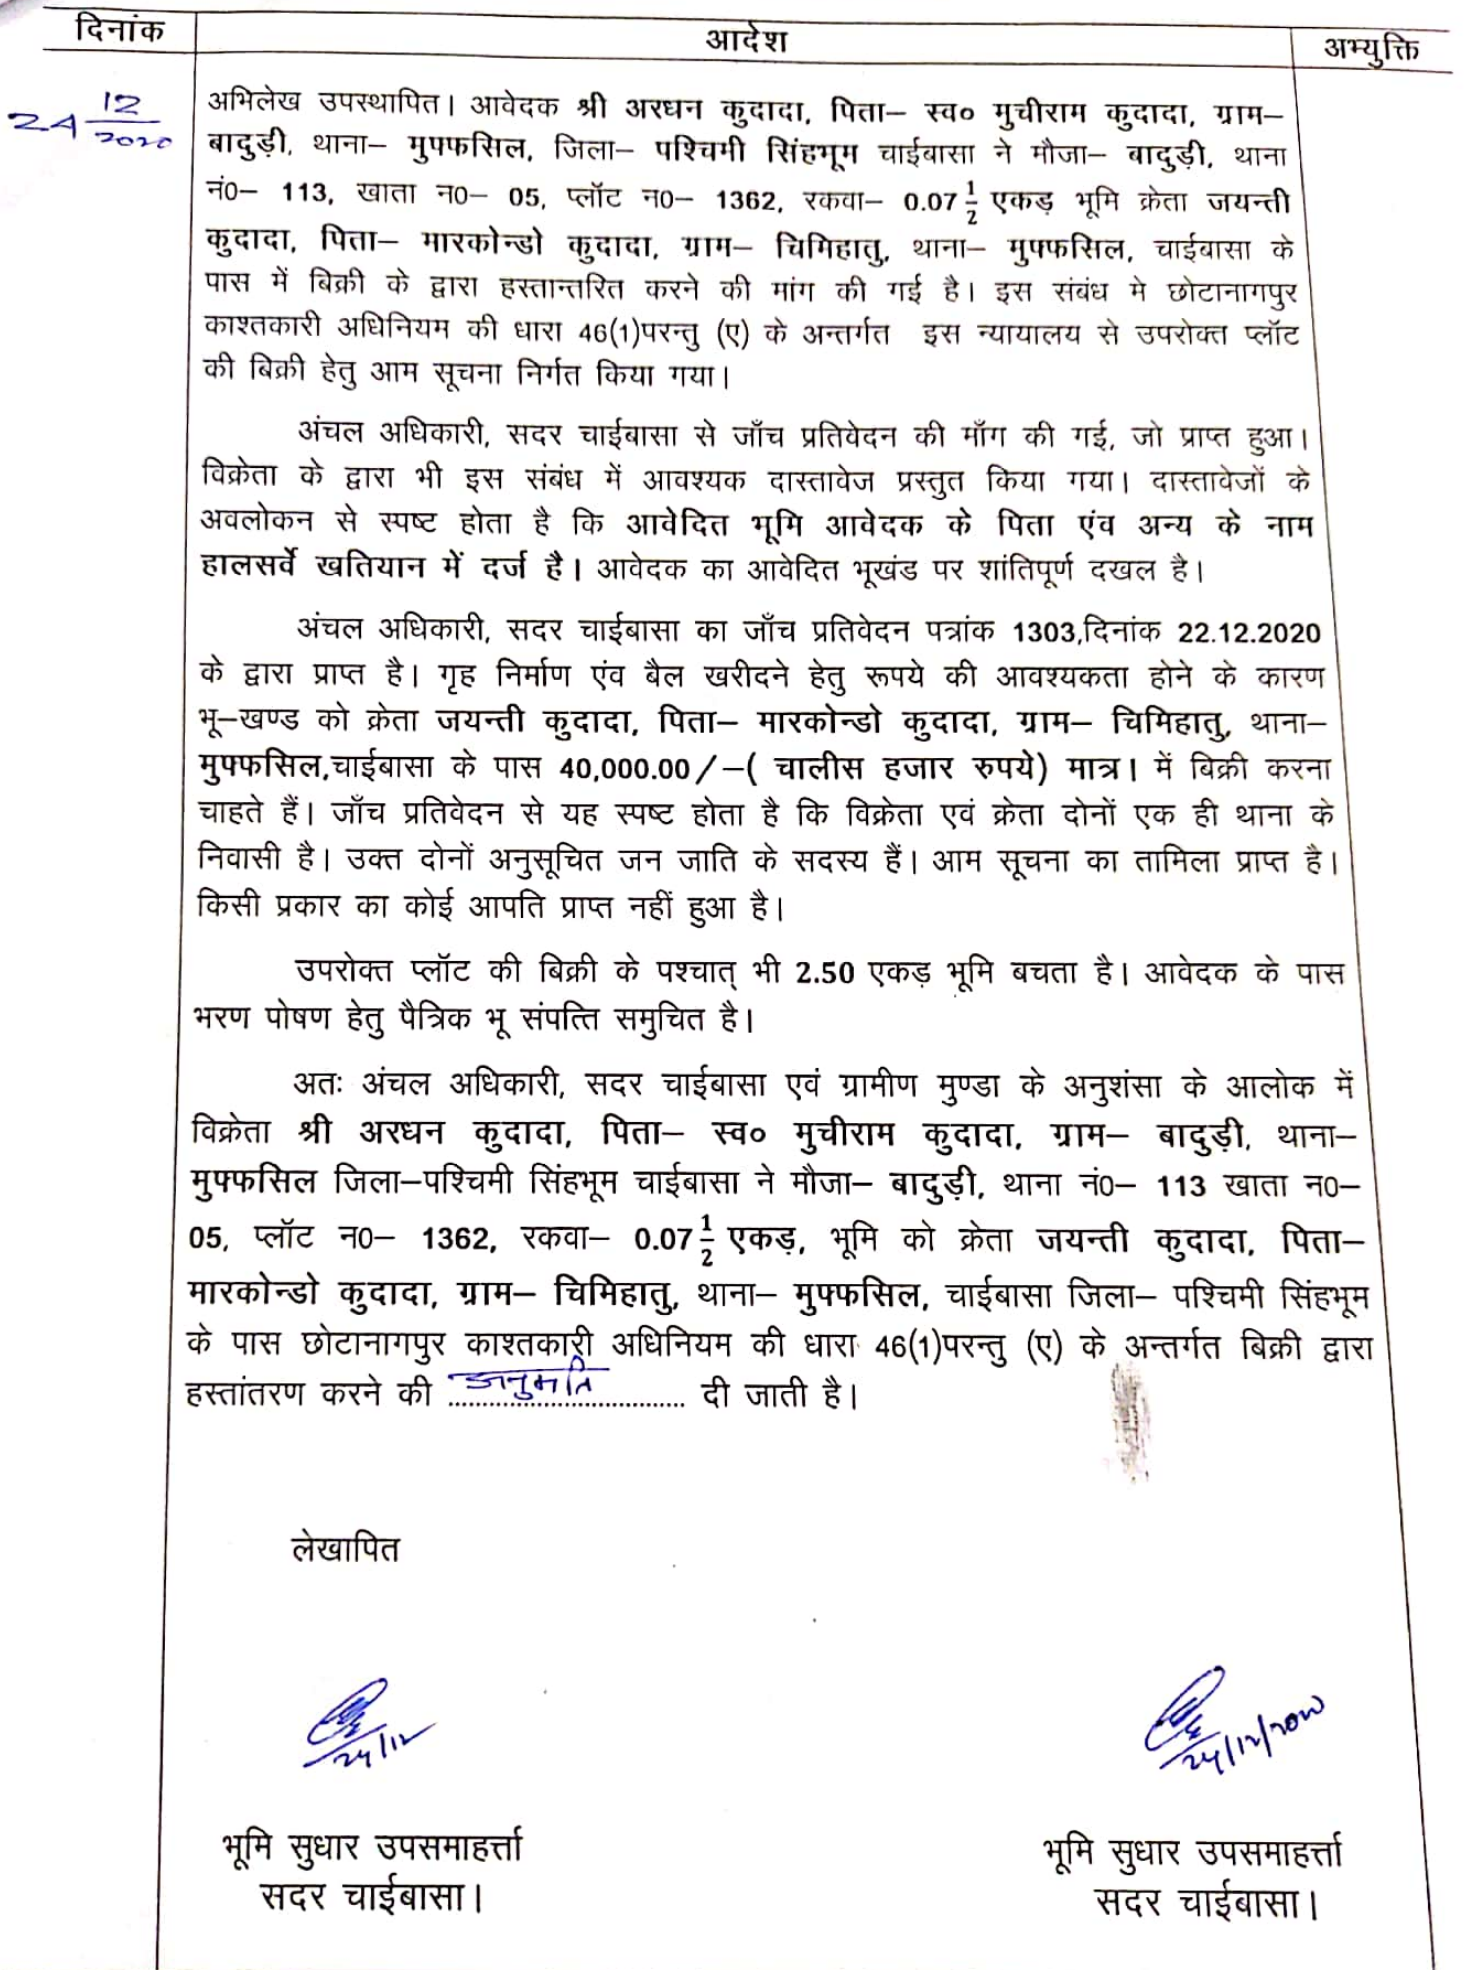 दिनांक आदेश अभ्युक्ति
24 12/2020
अभिलेख उपस्थापित। आवेदक श्री अरधन कुदादा, पिता– स्व० मुचीराम कुदादा, ग्राम–
बादुड़ी, थाना– मुफ्फसिल, जिला– पश्चिमी सिंहभूम चाईबासा ने मौजा– बादुड़ी, थाना
नं0– 113, खाता न0– 05, प्लॉट न0– 1362, रकवा– 0.07 1/2 एकड़ भूमि क्रेता जयन्ती
कुदादा, पिता– मारकोन्डो कुदादा, ग्राम– चिमिहातु, थाना– मुफ्फसिल, चाईबासा के
पास में बिक्री के द्वारा हस्तान्तरित करने की मांग की गई है। इस संबंध मे छोटानागपुर
काश्तकारी अधिनियम की धारा 46(1)परन्तु (ए) के अन्तर्गत इस न्यायालय से उपरोक्त प्लॉट
की बिक्री हेतु आम सूचना निर्गत किया गया।
अंचल अधिकारी, सदर चाईबासा से जाँच प्रतिवेदन की माँग की गई, जो प्राप्त हुआ।
विक्रेता के द्वारा भी इस संबंध में आवश्यक दास्तावेज प्रस्तुत किया गया। दास्तावेजों के
अवलोकन से स्पष्ट होता है कि आवेदित भूमि आवेदक के पिता एंव अन्य के नाम
हालसर्वे खतियान में दर्ज है। आवेदक का आवेदित भूखंड पर शांतिपूर्ण दखल है।
अंचल अधिकारी, सदर चाईबासा का जाँच प्रतिवेदन पत्रांक 1303,दिनांक 22.12.2020
के द्वारा प्राप्त है। गृह निर्माण एंव बैल खरीदने हेतु रूपये की आवश्यकता होने के कारण
भू–खण्ड को क्रेता जयन्ती कुदादा, पिता– मारकोन्डो कुदादा, ग्राम– चिमिहातु, थाना–
मुफ्फसिल,चाईबासा के पास 40,000.00/–( चालीस हजार रुपये) मात्र। में बिक्री करना
चाहते हैं। जाँच प्रतिवेदन से यह स्पष्ट होता है कि विक्रेता एवं क्रेता दोनों एक ही थाना के
निवासी है। उक्त दोनों अनुसूचित जन जाति के सदस्य हैं। आम सूचना का तामिला प्राप्त है।
किसी प्रकार का कोई आपति प्राप्त नहीं हुआ है।
उपरोक्त प्लॉट की बिक्री के पश्चात् भी 2.50 एकड़ भूमि बचता है। आवेदक के पास
भरण पोषण हेतु पैत्रिक भू संपत्ति समुचित है।
अतः अंचल अधिकारी, सदर चाईबासा एवं ग्रामीण मुण्डा के अनुशंसा के आलोक में
विक्रेता श्री अरधन कुदादा, पिता– स्व० मुचीराम कुदादा, ग्राम– बादुड़ी, थाना–
मुफ्फसिल जिला–पश्चिमी सिंहभूम चाईबासा ने मौजा– बादुड़ी, थाना नं0– 113 खाता न0–
05, प्लॉट न0– 1362, रकवा– 0.07 1/2 एकड़, भूमि को क्रेता जयन्ती कुदादा, पिता–
मारकोन्डो कुदादा, ग्राम– चिमिहातु, थाना– मुफ्फसिल, चाईबासा जिला– पश्चिमी सिंहभूम
के पास छोटानागपुर काश्तकारी अधिनियम की धारा 46(1)परन्तु (ए) के अन्तर्गत बिक्री द्वारा
हस्तांतरण करने की अनुमति दी जाती है।
लेखापित
24/12 24/12/2020
भूमि सुधार उपसमाहर्त्ता भूमि सुधार उपसमाहर्त्ता
सदर चाईबासा। सदर चाईबासा।